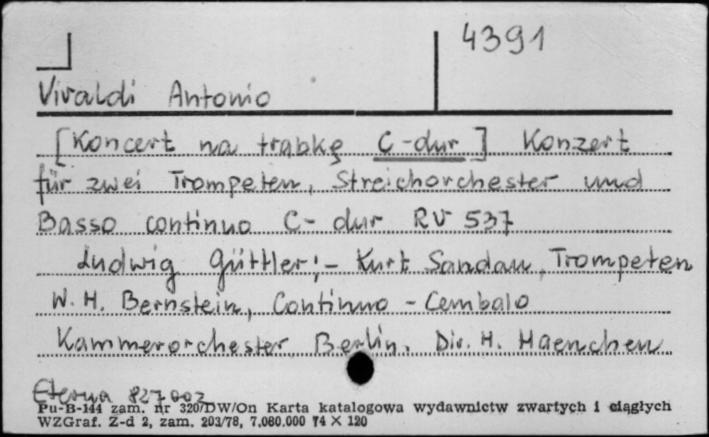 4391
Vivaldi Antonio
[Koncert na trąbkę C-dur] Konzert
für zwei Trompeten, Streichorchester und
Basso continuo C-dur RV 537
Ludwig Güttler; - Kurt Sandau, Trompeten
W. H. Bernstein, Continuo - Cembalo
Kammerorchester Berlin. Dir. H. Haenchen
Eterna 827002
Pu-B-144 zam. nr 320/DW/On Karta katalogowa wydawnictw zwartych i ciągłych
WZGraf. Z-d 2, zam. 203/78, 7.080.000 74 X 120